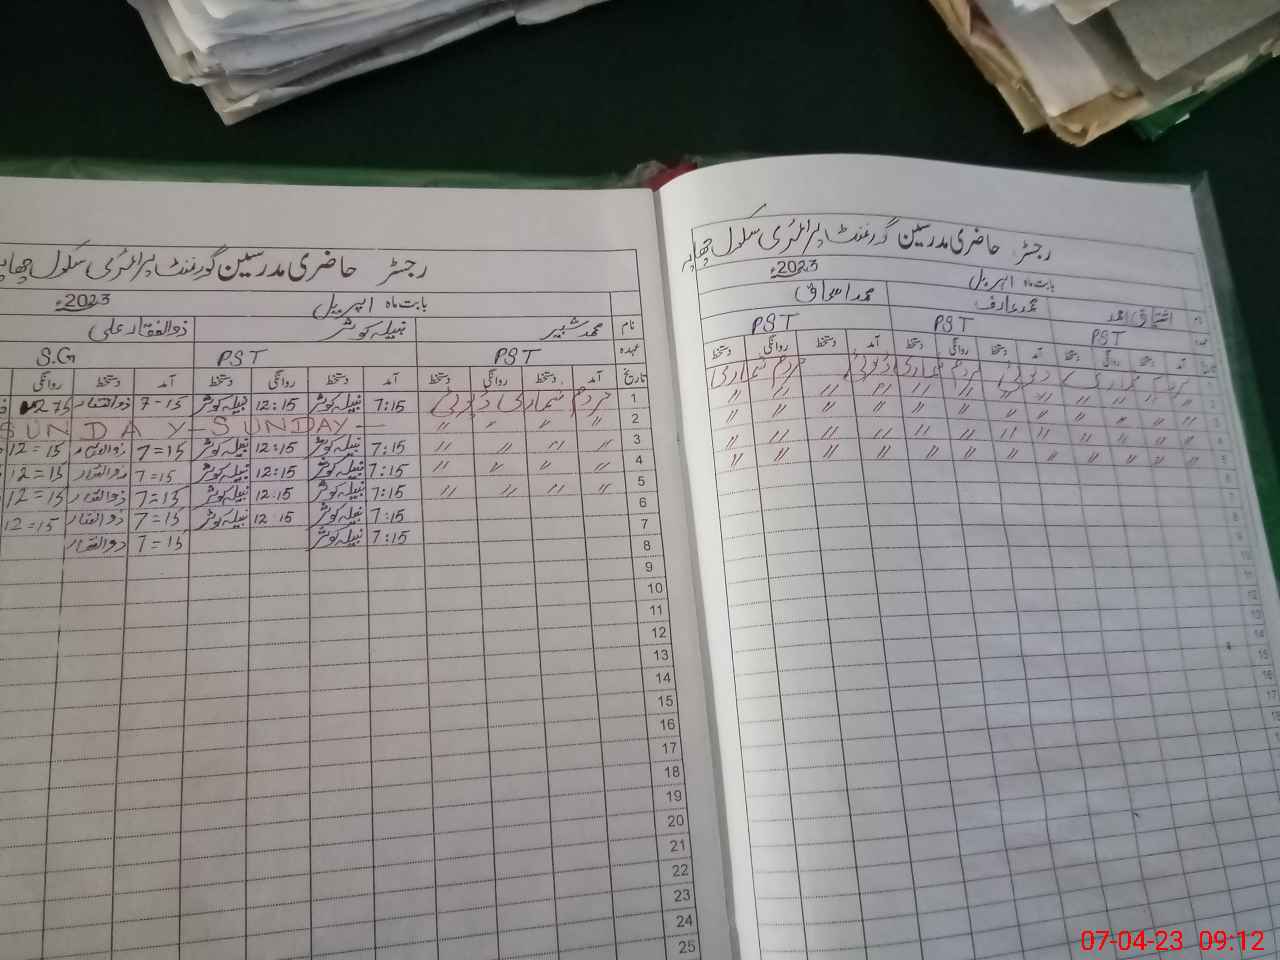 رجسٹر حاضری مدرسین گورنمنٹ پرائمری سکول چھاپہ
بابت ماہ اپریل 2023ء
نام محمد شبیر نبیلہ کوثر ذوالفقار علی
عہدہ PST PST S.G
تاریخ آمد دستخط روانگی دستخط آمد دستخط روانگی دستخط آمد دستخط روانگی
1 مردم شماری ڈیوٹی 7:15 نبیلہ کوثر 12:15 نبیلہ کوثر 7-15 ذوالفقار
2 〃 〃 〃 〃 SUNDAY - SUNDAY
3 〃 〃 〃 〃 7:15 نبیلہ کوثر 12:15 نبیلہ کوثر 7=15 ذوالفقار 12=15
4 〃 〃 〃 〃 7:15 نبیلہ کوثر 12:15 نبیلہ کوثر 7=15 ذوالفقار 12=15
5 〃 〃 〃 〃 7:15 نبیلہ کوثر 12:15 نبیلہ کوثر 7=15 ذوالفقار 12=15
6 7:15 نبیلہ کوثر 12:15 نبیلہ کوثر 7=15 ذوالفقار 12=15
7 7:15 نبیلہ کوثر 7=15 ذوالفقار
8
9
10
11
12
13
14
15
16
17
18
19
20
21
22
23
24
25
رجسٹر حاضری مدرسین گورنمنٹ پرائمری سکول چھاپہ
بابت ماہ اپریل 2023ء
نام اشتیاق احمد محمد عارف محمد اسحاق
PST PST PST
تاریخ آمد دستخط روانگی دستخط آمد دستخط روانگی دستخط آمد دستخط روانگی دستخط
مردم شماری ڈیوٹی مردم شماری ڈیوٹی مردم شماری
〃 〃 〃 〃 〃 〃 〃 〃 〃 〃 〃 〃
〃 〃 〃 〃 〃 〃 〃 〃 〃 〃 〃 〃
〃 〃 〃 〃 〃 〃 〃 〃 〃 〃 〃 〃
〃 〃 〃 〃 〃 〃 〃 〃 〃 〃 〃 〃
10
11
12
13
14
15
16
07-04-23 09:12